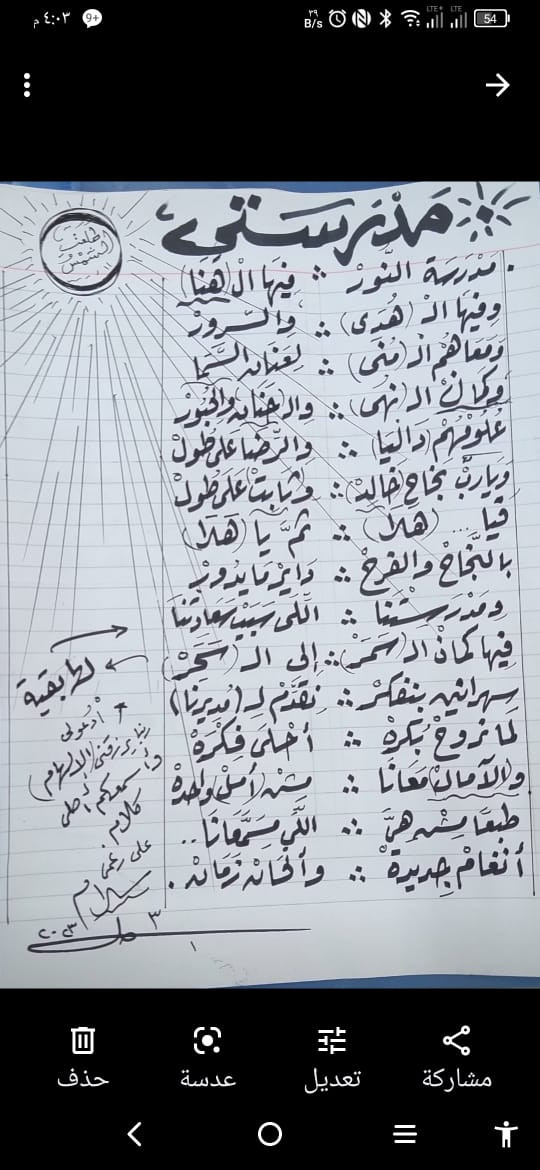 ٤:٠٣ م
9+
٣٩ B/s
LTE+ LTE
54
مَدْرَستى
طلعت الشمس
. مدرَسة النّور ∴ فيها ال (هَنَا)
وفيها الـ (هُدى) ∴ والسّرورْ
وَمَعَاهُم الـ (منى) ∴ لِعَنان السَّما
وكمان الـ (نُهى) ∴ والـ (حَنان) والحُبورْ
عُلومْهُمْ (دَاليَا) ∴ والرِّضا على طولْ
وَيَاربّ نجاح (خالِد) ∴ وثَابِتْ على طولْ
فيَا ... (هَلاَ) ∴ ثمَّ يا (هَلاَ)
بالنَّجَاحْ والفرحْ ∴ دَايرْ مَا يدُورْ
ومدْرَسِتْنا ∴ اللّى سَبَبْ سعَادِتْنا
فيها كمانْ الـ (سَمَرْ) ∴ إلى الـ (سَحَرْ)
سهرانين بنفكّرْ ∴ نقدّم لـ (مُديرنا)
لما نروحْ بُكرَهْ ∴ أحْلَى فِكْرَهْ
و(الآمال) مَعَانا ∴ مِشْ (أمل) واحْدَهْ
طبعًا مِشْ هىَّ ∴ اللّى مسَمَّعَانا ..
أنغَامْ جديدهْ ∴ وألحانْ زمَانْ .
لها بقية
أدعولى
ربنا يرزقنى (الإلهام)
وأسمعكم أحلى
كلام
على رغمى
سلام
٣
١
٢٠٢٣
مشاركة
تعديل
عدسة
حذف